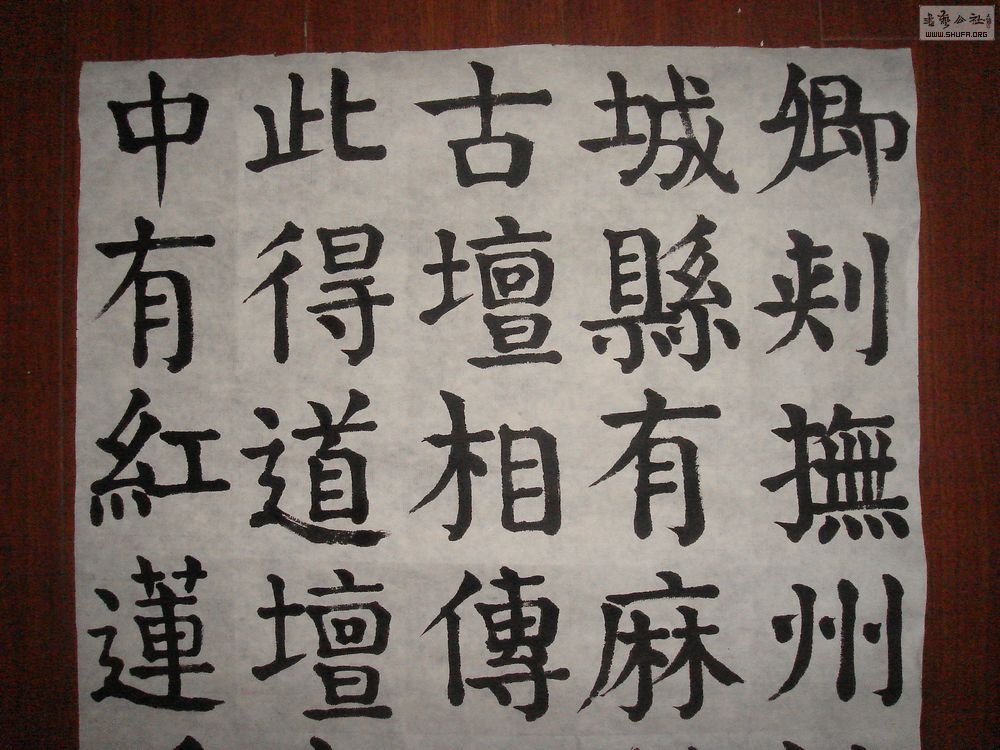 卿刾撫州
城縣有麻
古壇相傳
此得道壇
中有紅蓮
WWW.SHUFA.ORG